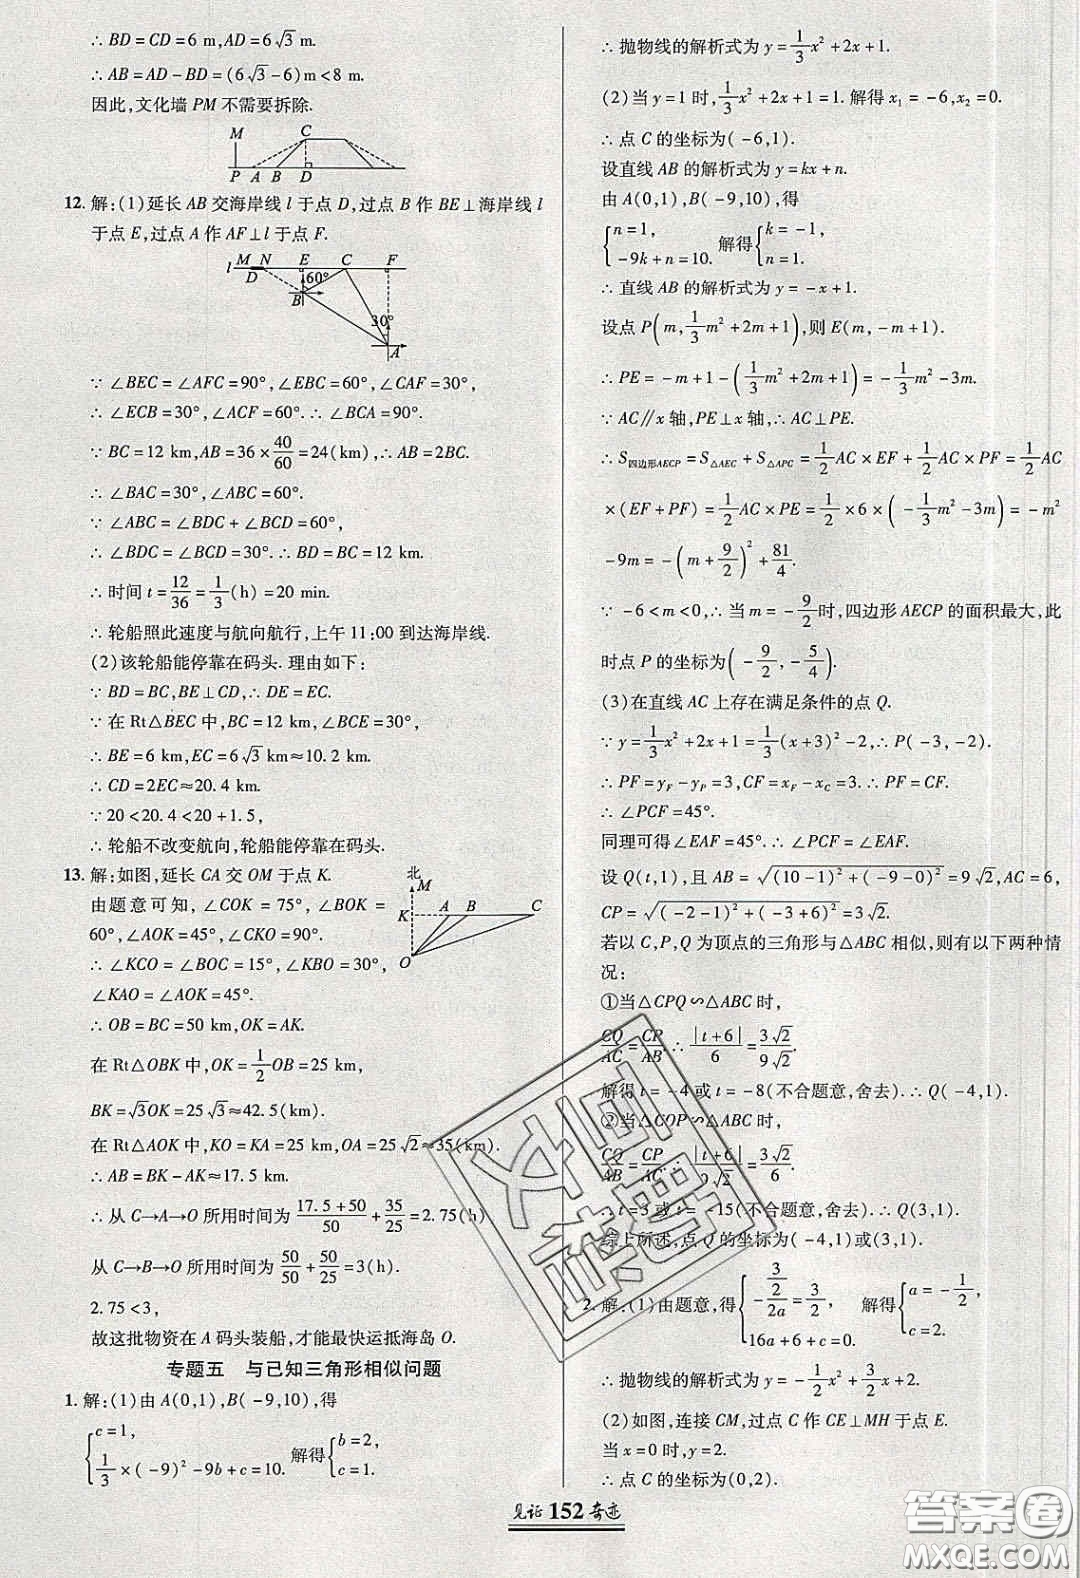 ∴ BD=CD=6 m,AD=6√3 m.
∴ AB=AD-BD=(6√3-6)m<8 m.
因此,文化墙 PM 不需要拆除.
M C
P A B D
12. 解:(1)延长 AB 交海岸线 l 于点 D,过点 B 作 BE⊥海岸线 l
于点 E,过点 A 作 AF⊥l 于点 F.
l M N E C F
D 60°
B
30°
A
∵ ∠BEC=∠AFC=90°,∠EBC=60°,∠CAF=30°,
∴ ∠ECB=30°,∠ACF=60°.∴ ∠BCA=90°.
∵ BC=12 km,AB=36×40/60=24(km),
∴ ∠BAC=30°,∠ABC=60°.
∵ ∠ABC=∠BDC+∠BCD=60°,
∴ ∠BDC=∠BCD=30°.∴ BD=BC=12 km.
∴ 时间 t=12/36=1/3(h)=20 min.
∴ 轮船照此速度与航向航行,上午 11:00 到达海岸线.
(2)该轮船能停靠在码头.理由如下:
∵ BD=BC,BE⊥CD,∴ DE=EC.
∵ 在 Rt△BEC 中,BC=12 km,∠BCE=30°,
∴ BE=6 km,EC=6√3≈10.2 km.
∴ CD=2EC≈20.4 km.
∵ 20<20.4<20+1.5,
∴ 轮船不改变航向,轮船能停靠在码头.
13. 解:如图,延长 CA 交 OM 于点 K.
由题意可知,∠COK=75°,∠BOK=
60°,∠AOK=45°,∠CKO=90°.
∴ ∠KCO=∠BOC=15°,∠KBO=30°,
∠KAO=∠AOK=45°.
北
M
K A B C
O
∴ OB=BC=50 km,OK=AK.
在 Rt△OBK 中,OK=1/2OB=25 km,
BK=√3OK=25√3≈42.5(km).
在 Rt△AOK 中,KO=KA=25 km,OA=25√2≈35(km).
∴ AB=BK-AK≈17.5 km.
∴ 从 C→A→O 所用时间为(17.5+50)/50+35/25=2.75(h).
从 C→B→O 所用时间为50/50+50/25=3(h).
2.75<3,
故这批物资在 A 码头装船,才能最快运抵海岛 O.
专题五 与已知三角形相似问题
1. 解:(1)由 A(0,1),B(-9,10),得
{c=1, 1/3×(-9)²-9b+c=10. 解得{b=2, c=1.
∴ 抛物线的解析式为 y=1/3x²+2x+1.
(2)当 y=1 时,1/3x²+2x+1=1.解得 x₁=-6,x₂=0.
∴ 点 C 的坐标为(-6,1).
设直线 AB 的解析式为 y=kx+n.
由 A(0,1),B(-9,10),得
{n=1, -9k+n=10. 解得{k=-1, n=1.
∴ 直线 AB 的解析式为 y=-x+1.
设点 P(m,1/3m²+2m+1),则 E(m,-m+1).
∴ PE=-m+1-(1/3m²+2m+1)=-1/3m²-3m.
∵ AC∥x 轴,PE⊥x 轴,∴ AC⊥PE.
∴ S四边形AECP=S△AEC+S△APC=1/2AC×EF+1/2AC×PF=1/2AC
×(EF+PF)=1/2AC×PE=1/2×6×(-1/3m²-3m)=-m²
-9m=-(m+9/2)²+81/4.
∵ -6<m<0,∴ 当 m=-9/2时,四边形 AECP 的面积最大,此
时点 P 的坐标为(-9/2,-5/4).
(3)在直线 AC 上存在满足条件的点 Q.
∵ y=1/3x²+2x+1=1/3(x+3)²-2,∴ P(-3,-2).
∴ PF=y_F-y_P=3,CF=x_F-x_C=3.∴ PF=CF.
∴ ∠PCF=45°.
同理可得∠EAF=45°.∴ ∠PCF=∠EAF.
设 Q(t,1),且 AB=√((10-1)²+(-9-0)²)=9√2,AC=6,
CP=√((-2-1)²+(-3+6)²)=3√2.
若以 C,P,Q 为顶点的三角形与△ABC 相似,则有以下两种情
况:
①当△CPQ∽△ABC 时,
CQ/AC=CP/AB.∴ |t+6|/6=3√2/9√2.
解得 t=-4 或 t=-8(不合题意,舍去).∴ Q(-4,1).
②当△CQP∽△ABC 时,
CQ/AB=CP/AC.∴ |t+6|/9√2=3√2/6.
∴ t=3 或 t=-15(不合题意,舍去).∴ Q(3,1).
综上所述,点 Q 的坐标为(-4,1)或(3,1).
2. 解:(1)由题意,得{-(3/2)/2a=3/2, 16a+6+c=0. 解得{a=-1/2, c=2.
∴ 抛物线的解析式为 y=-1/2x²+3/2x+2.
(2)如图,连接 CM,过点 C 作 CE⊥MH 于点 E.
当 x=0 时,y=2.
∴ 点 C 的坐标为(0,2).
见证 152 奇迹
答案卷
MXQE.COM